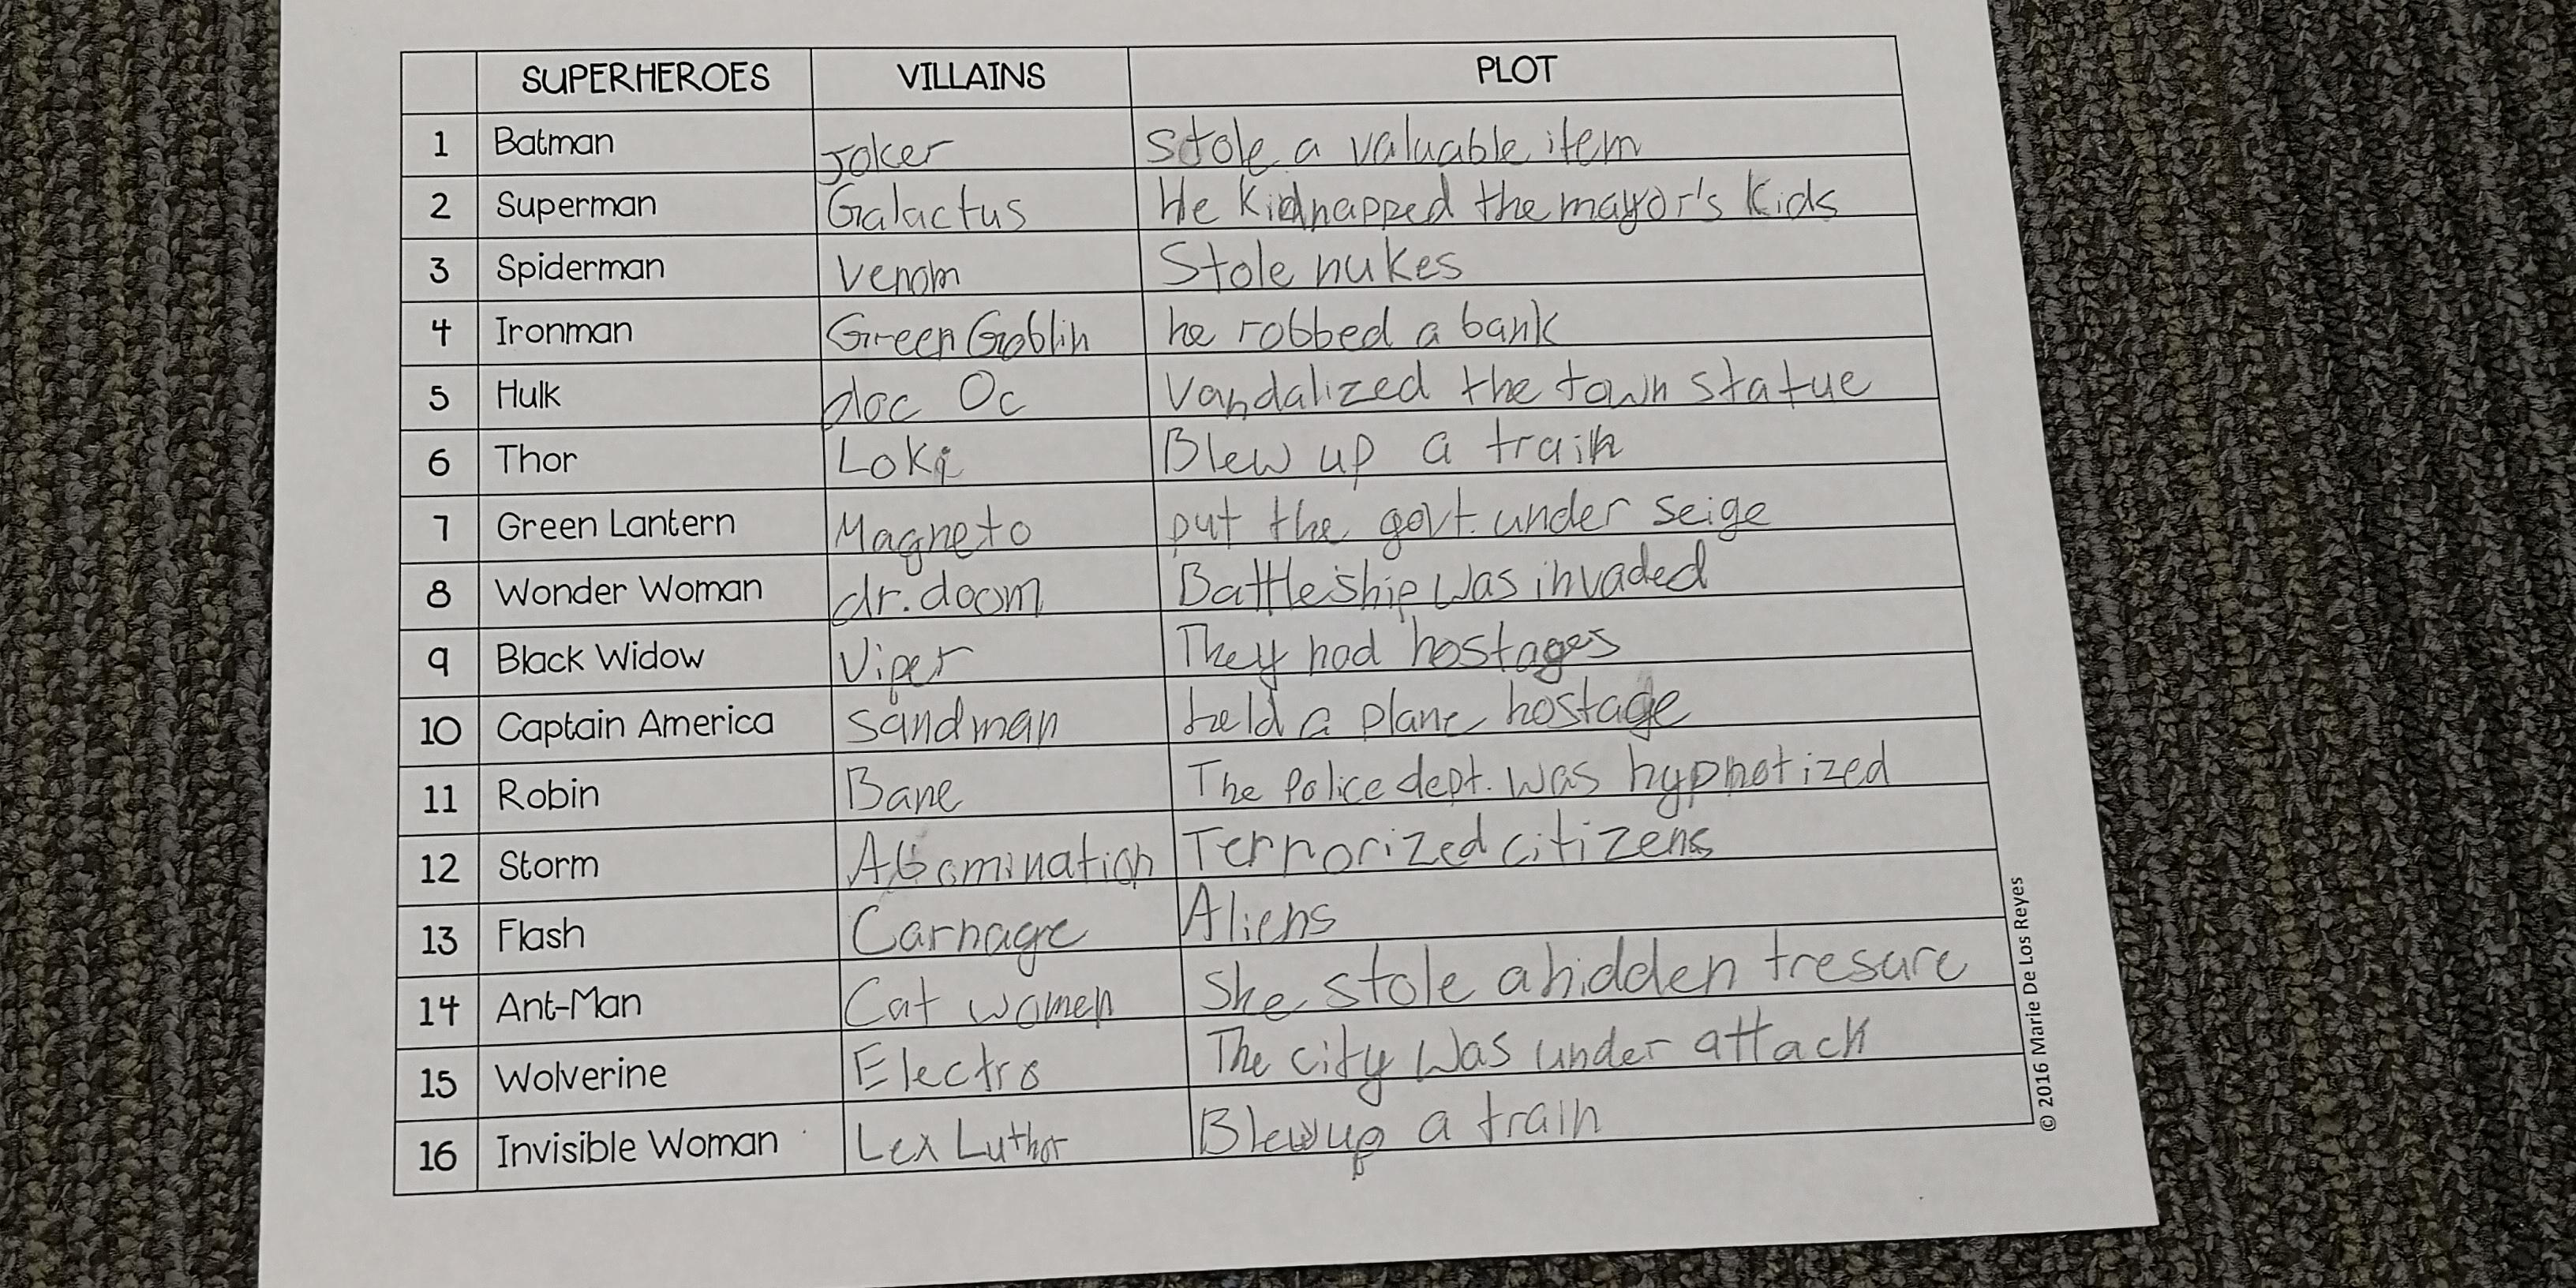 SUPERHEROES VILLAINS PLOT
1 Batman Joker Stole a valuable item
2 Superman Galactus He Kidnapped the mayor's Kids
3 Spiderman Venom Stole nukes
4 Ironman Green Goblin he robbed a bank
5 Hulk doc Oc Vandalized the town statue
6 Thor Loki Blew up a train
7 Green Lantern Magneto put the govt. under seige
8 Wonder Woman dr. doom Battleship was invaded
9 Black Widow Viper They had hostages
10 Captain America sandman held a plane hostage
11 Robin Bane The Police dept. was hypnotized
12 Storm Abomination Terrorized citizens
13 Flash Carnage Aliens
14 Ant-Man Cat women She stole a hidden tresure
15 Wolverine Electro The city was under attack
16 Invisible Woman Lex Luthor Blew up a train
© 2016 Marie De Los Reyes